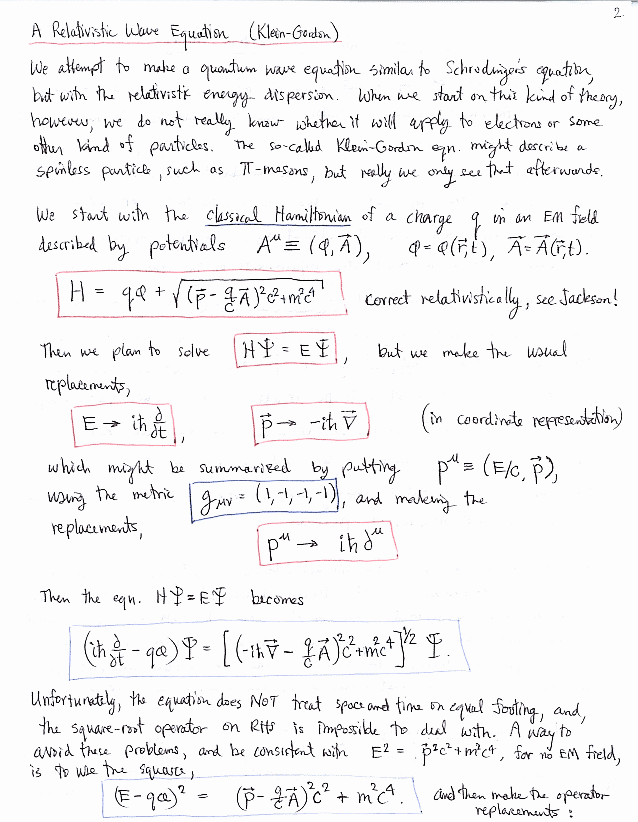 2.
A Relativistic Wave Equation (Klein-Gordon)
We attempt to make a quantum wave equation similar to Schrodinger's equation,
but with the relativistic energy dispersion. When we start on this kind of theory,
however, we do not really know whether it will apply to electrons or some
other kind of particles. The so-called Klein-Gordon eqn. might describe a
spinless particle, such as π-mesons, but really we only see that afterwards.
We start with the classical Hamiltonian of a charge q in an EM field
described by potentials A^μ ≡ (φ, A⃗), φ = φ(r⃗,t), A⃗ = A⃗(r⃗,t).
H = qφ + √((p⃗ - q/c A⃗)²c² + m²c⁴) correct relativistically, see Jackson!
Then we plan to solve HΨ = EΨ, but we make the usual
replacements,
E → iħ ∂/∂t, p⃗ → -iħ∇⃗ (in coordinate representation)
which might be summarized by putting p^μ ≡ (E/c, p⃗),
using the metric g_μν = (1,-1,-1,-1), and making the
replacements,
p^μ → iħ∂^μ
Then the eqn. HΨ = EΨ becomes
(iħ ∂/∂t - qφ)Ψ = [(-iħ∇⃗ - q/c A⃗)²c² + m²c⁴]^1/2 Ψ.
Unfortunately, the equation does NOT treat space and time on equal footing, and,
the square-root operator on RHS is impossible to deal with. A way to
avoid these problems, and be consistent with E² = p⃗²c² + m²c⁴, for no EM field,
is to use the square,
(E - qφ)² = (p⃗ - q/c A⃗)²c² + m²c⁴. and then make the operator
replacements: